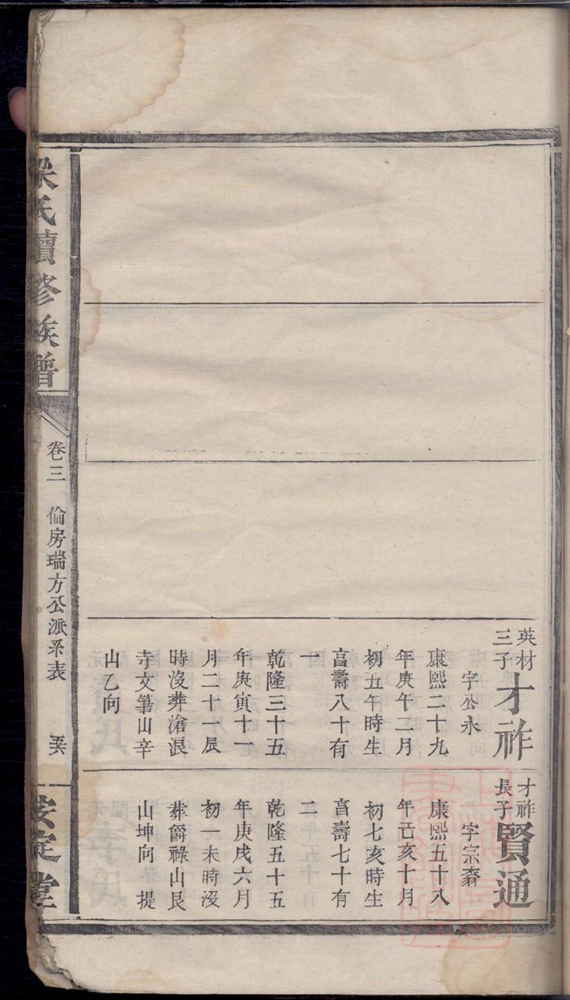 英材
三子
才祚
字公永
康熙二十九
年庚午二月
初五午時生
高壽八十有
一
乾隆三十五
年庚寅十一
月二十一辰
時沒葬滄浪
寺文筆山辛
山乙向
才祚
長子
賢通
字宗
康熙五十八
年己亥十月
初七亥時生
高壽七十有
二
乾隆五十五
年庚戌六月
初一未時沒
葬爵祿山艮
山坤向 提
梁氏續修族譜
卷三 倫房瑞方公派系表
安定堂